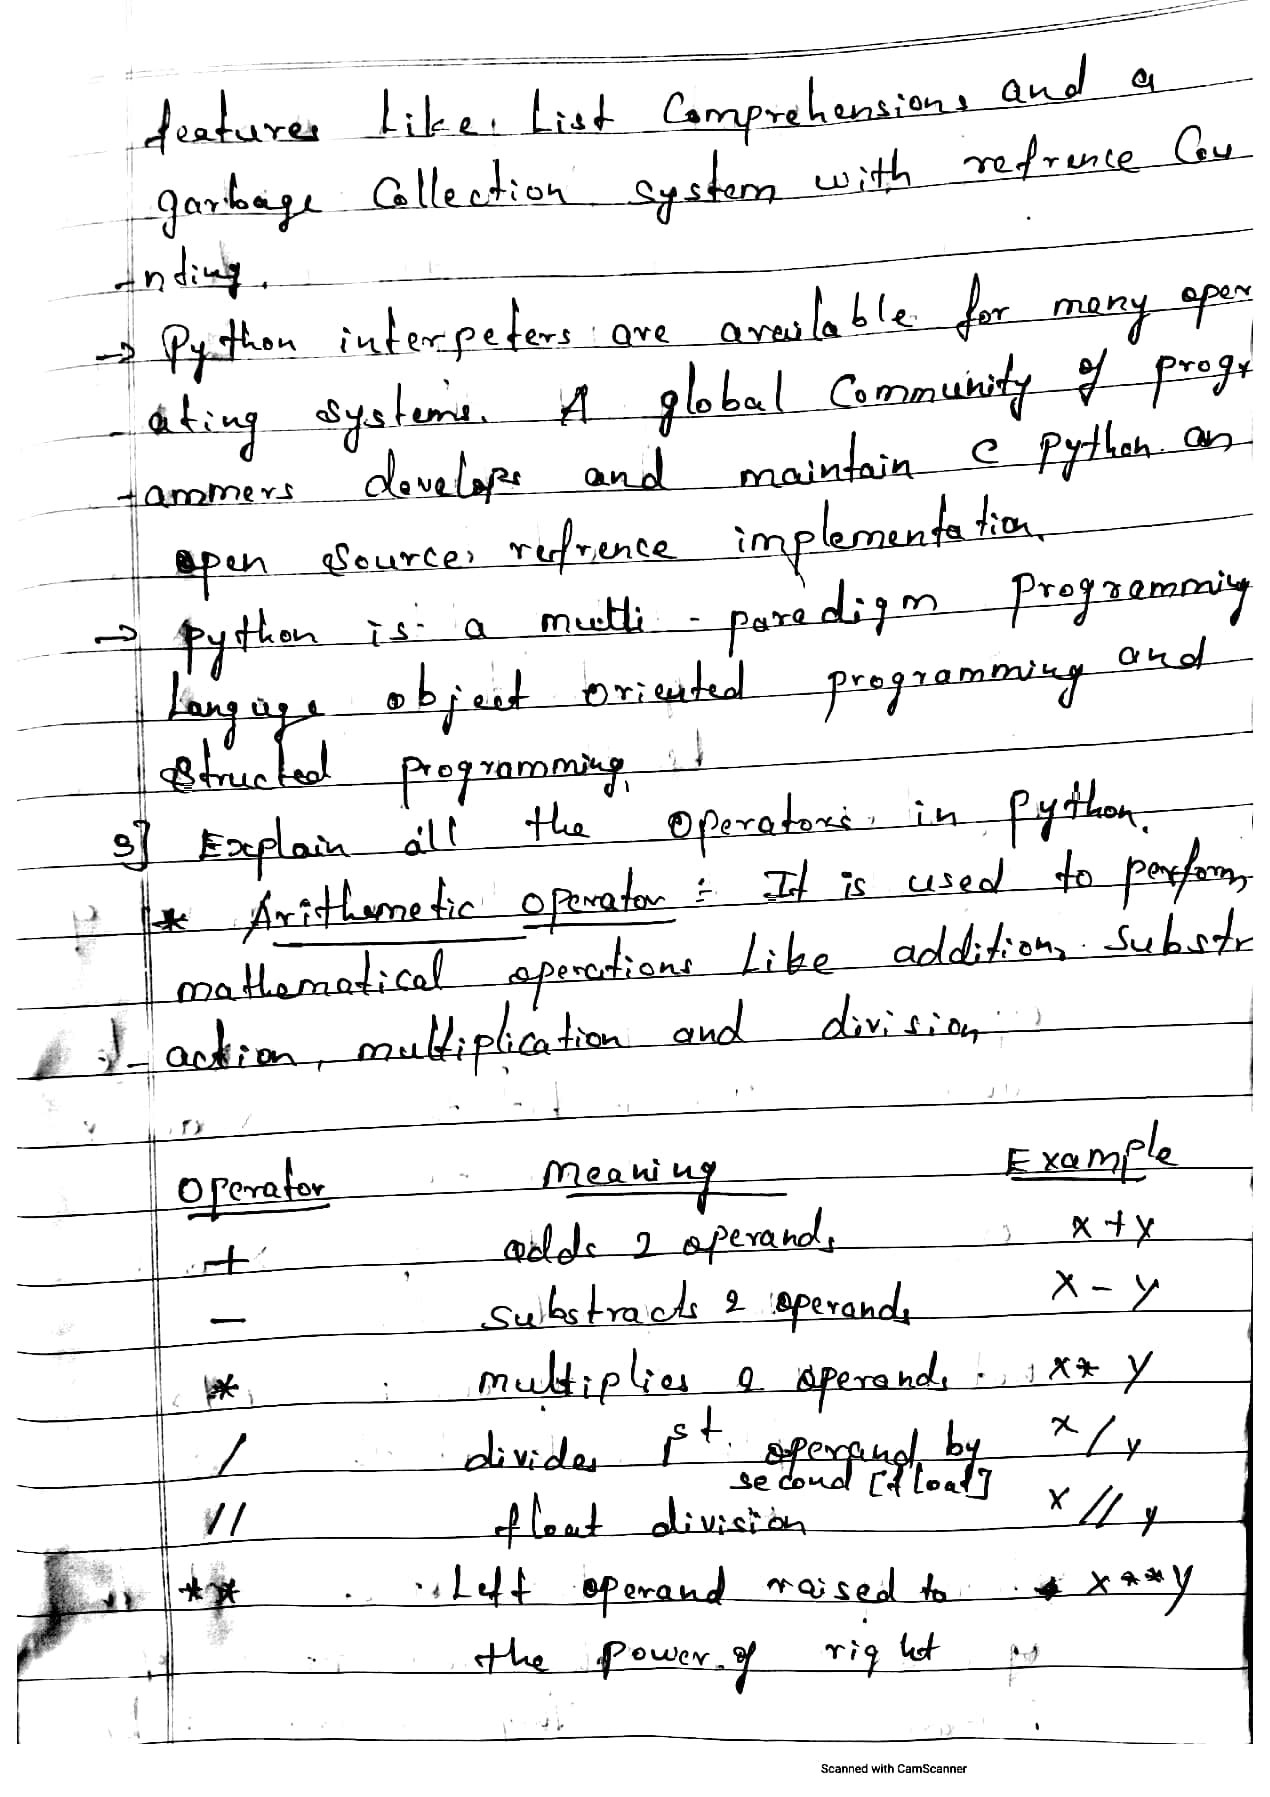 features like. List Comprehensions and a
garbage Collection system with refrence Cou
-nting.
→ Python interpeters are available for many oper
-ating systems. A global Community of progr
-ammers develops and maintain c python an
open source, refrence implementation.
→ python is a multi - paradigm programming
Languge object oriented programming and
structed programming.
3] Explain all the operators in python.
* Arithemetic operator :- It is used to perform
mathematical operations Like addition, Substr
-action, multiplication and division
Operator meaning Example
+ adds 2 operands x + y
- substracts 2 operands x - y
* multiplies 2 operands x * y
/ divides 1st. operand by x / y
second [float]
// float division x // y
** Left operand raised to x ** y
the power of right
Scanned with CamScanner